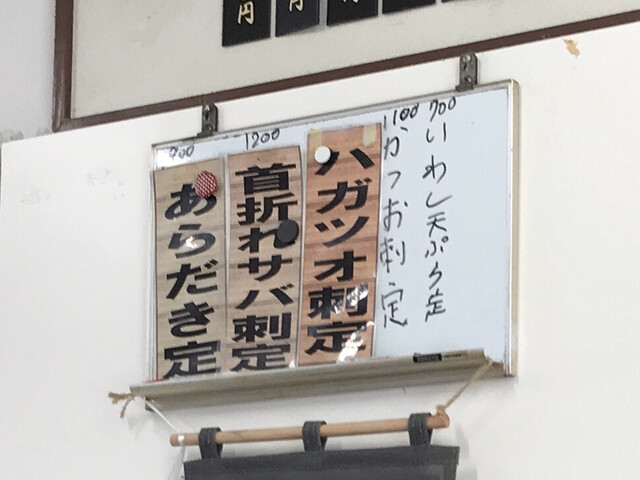 円
円
円
900
いわし天ぷら定
1100
かつお刺定
ハガツオ刺定
1200
首折れサバ刺定
あらだき定